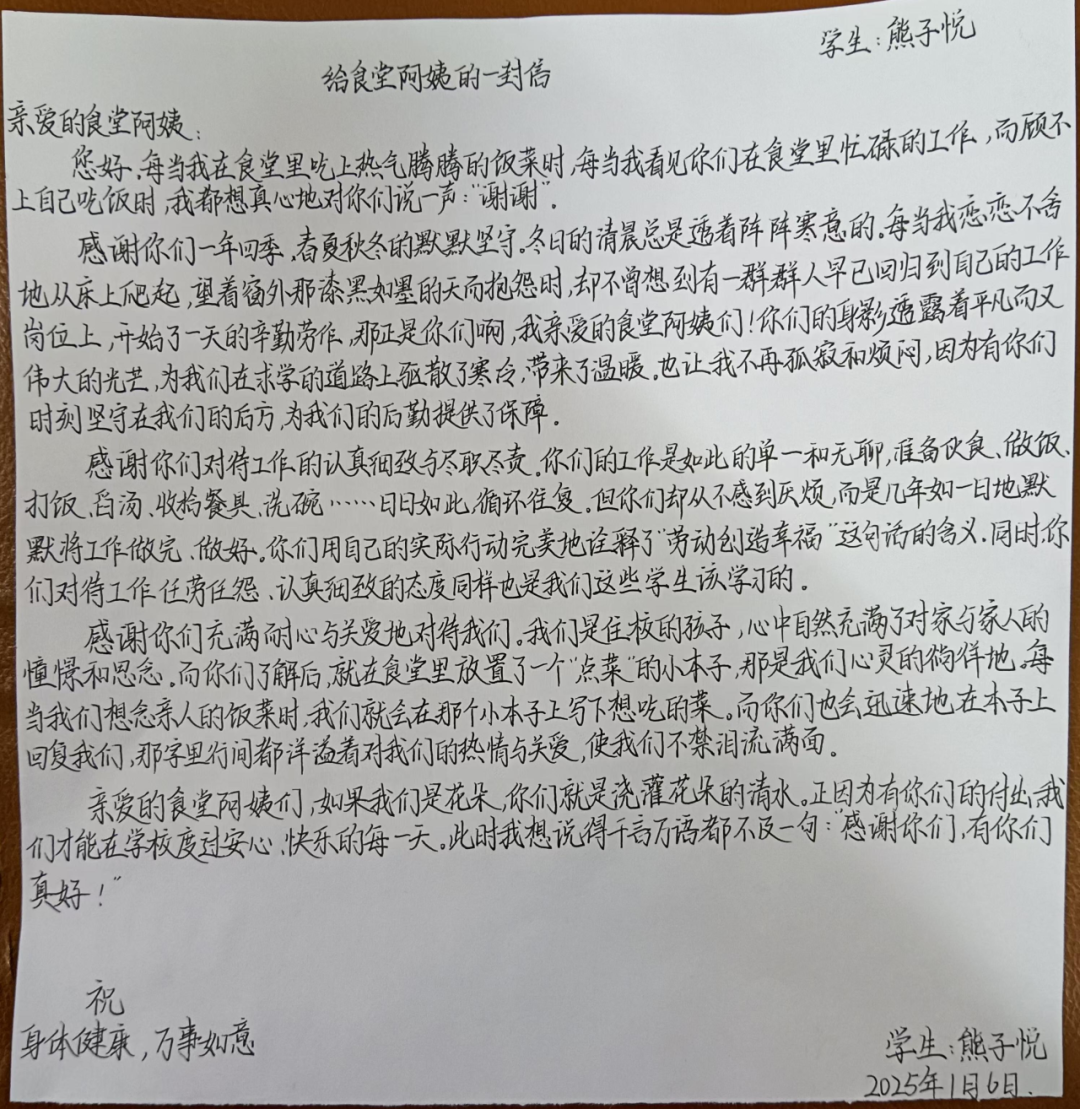 学生:熊子悦
给食堂阿姨的一封信
亲爱的食堂阿姨:
您好.每当我在食堂里吃上热气腾腾的饭菜时,每当我看见你们在食堂里忙碌的工作,而顾不
上自己吃饭时,我都想真心地对你们说一声:“谢谢”.
感谢你们一年四季,春夏秋冬的默默坚守.冬日的清晨总是透着阵阵寒意的.每当我恋恋不舍
地从床上爬起,望着窗外那漆黑如墨的天而抱怨时,却不曾想到有一群群人早已回归到自己的工作
岗位上,开始了一天的辛勤劳作,那正是你们啊,我亲爱的食堂阿姨们!你们的身影透露着平凡而又
伟大的光芒,为我们在求学的道路上驱散了寒冷,带来了温暖.也让我不再孤寂和烦闷,因为有你们
时刻坚守在我们的后方,为我们的后勤提供了保障.
感谢你们对待工作的认真细致与尽职尽责.你们的工作是如此的单一和无聊,准备伙食、做饭、
打饭、舀汤、收拾餐具、洗碗……日日如此,循环往复.但你们却从不感到厌烦,而是几年如一日地默
默将工作做完、做好.你们用自己的实际行动完美地诠释了“劳动创造幸福”这句话的含义.同时,你
们对待工作任劳任怨、认真细致的态度同样也是我们这些学生该学习的.
感谢你们充满耐心与关爱地对待我们.我们是住校的孩子,心中自然充满了对家与家人的
憧憬和思念.而你们了解后,就在食堂里放置了一个“点菜”的小本子,那是我们心灵的徜徉地.每
当我们想念亲人的饭菜时,我们就会在那个小本子上写下想吃的菜.而你们也会迅速地在本子上
回复我们,那字里行间都洋溢着对我们的热情与关爱,使我们不禁泪流满面.
亲爱的食堂阿姨们,如果我们是花朵,你们就是浇灌花朵的清水.正因为有你们的付出,我
们才能在学校度过安心、快乐的每一天.此时我想说得千言万语都不及一句:“感谢你们,有你们
真好!”
祝
身体健康,万事如意
学生:熊子悦
2025年1月6日.